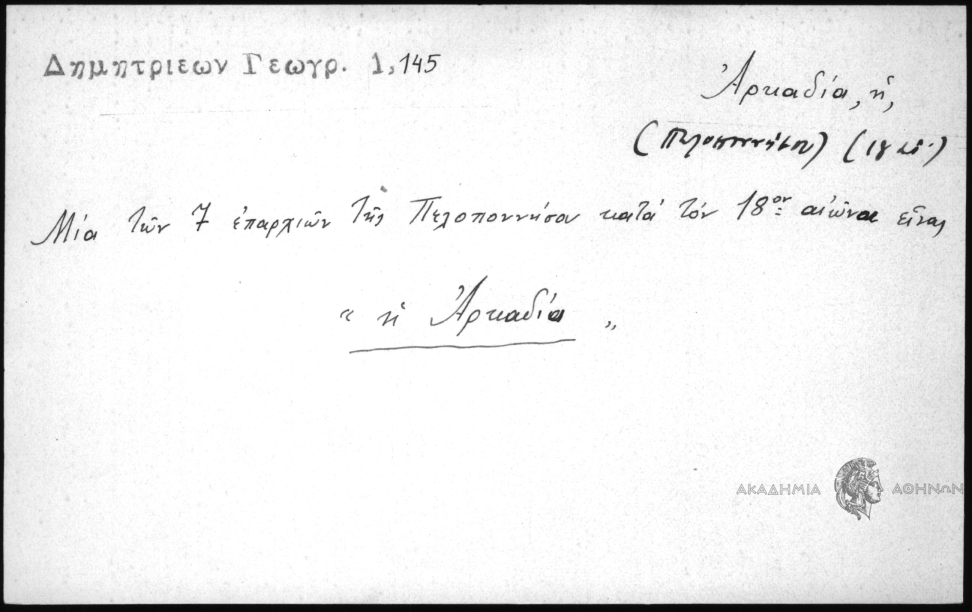 Δημητριεων Γεωγρ. 1,145
Ἀρκαδία, ἡ,
(Πελοποννήσου) (18 αἰ.)
Μία τῶν 7 ἐπαρχιῶν τῆς Πελοποννήσου κατά τόν 18ον αἰῶνα εἶναι
“ ἡ Ἀρκαδία „
ΑΚΑΔΗΜΙΑ ΑΘΗΝΩΝ